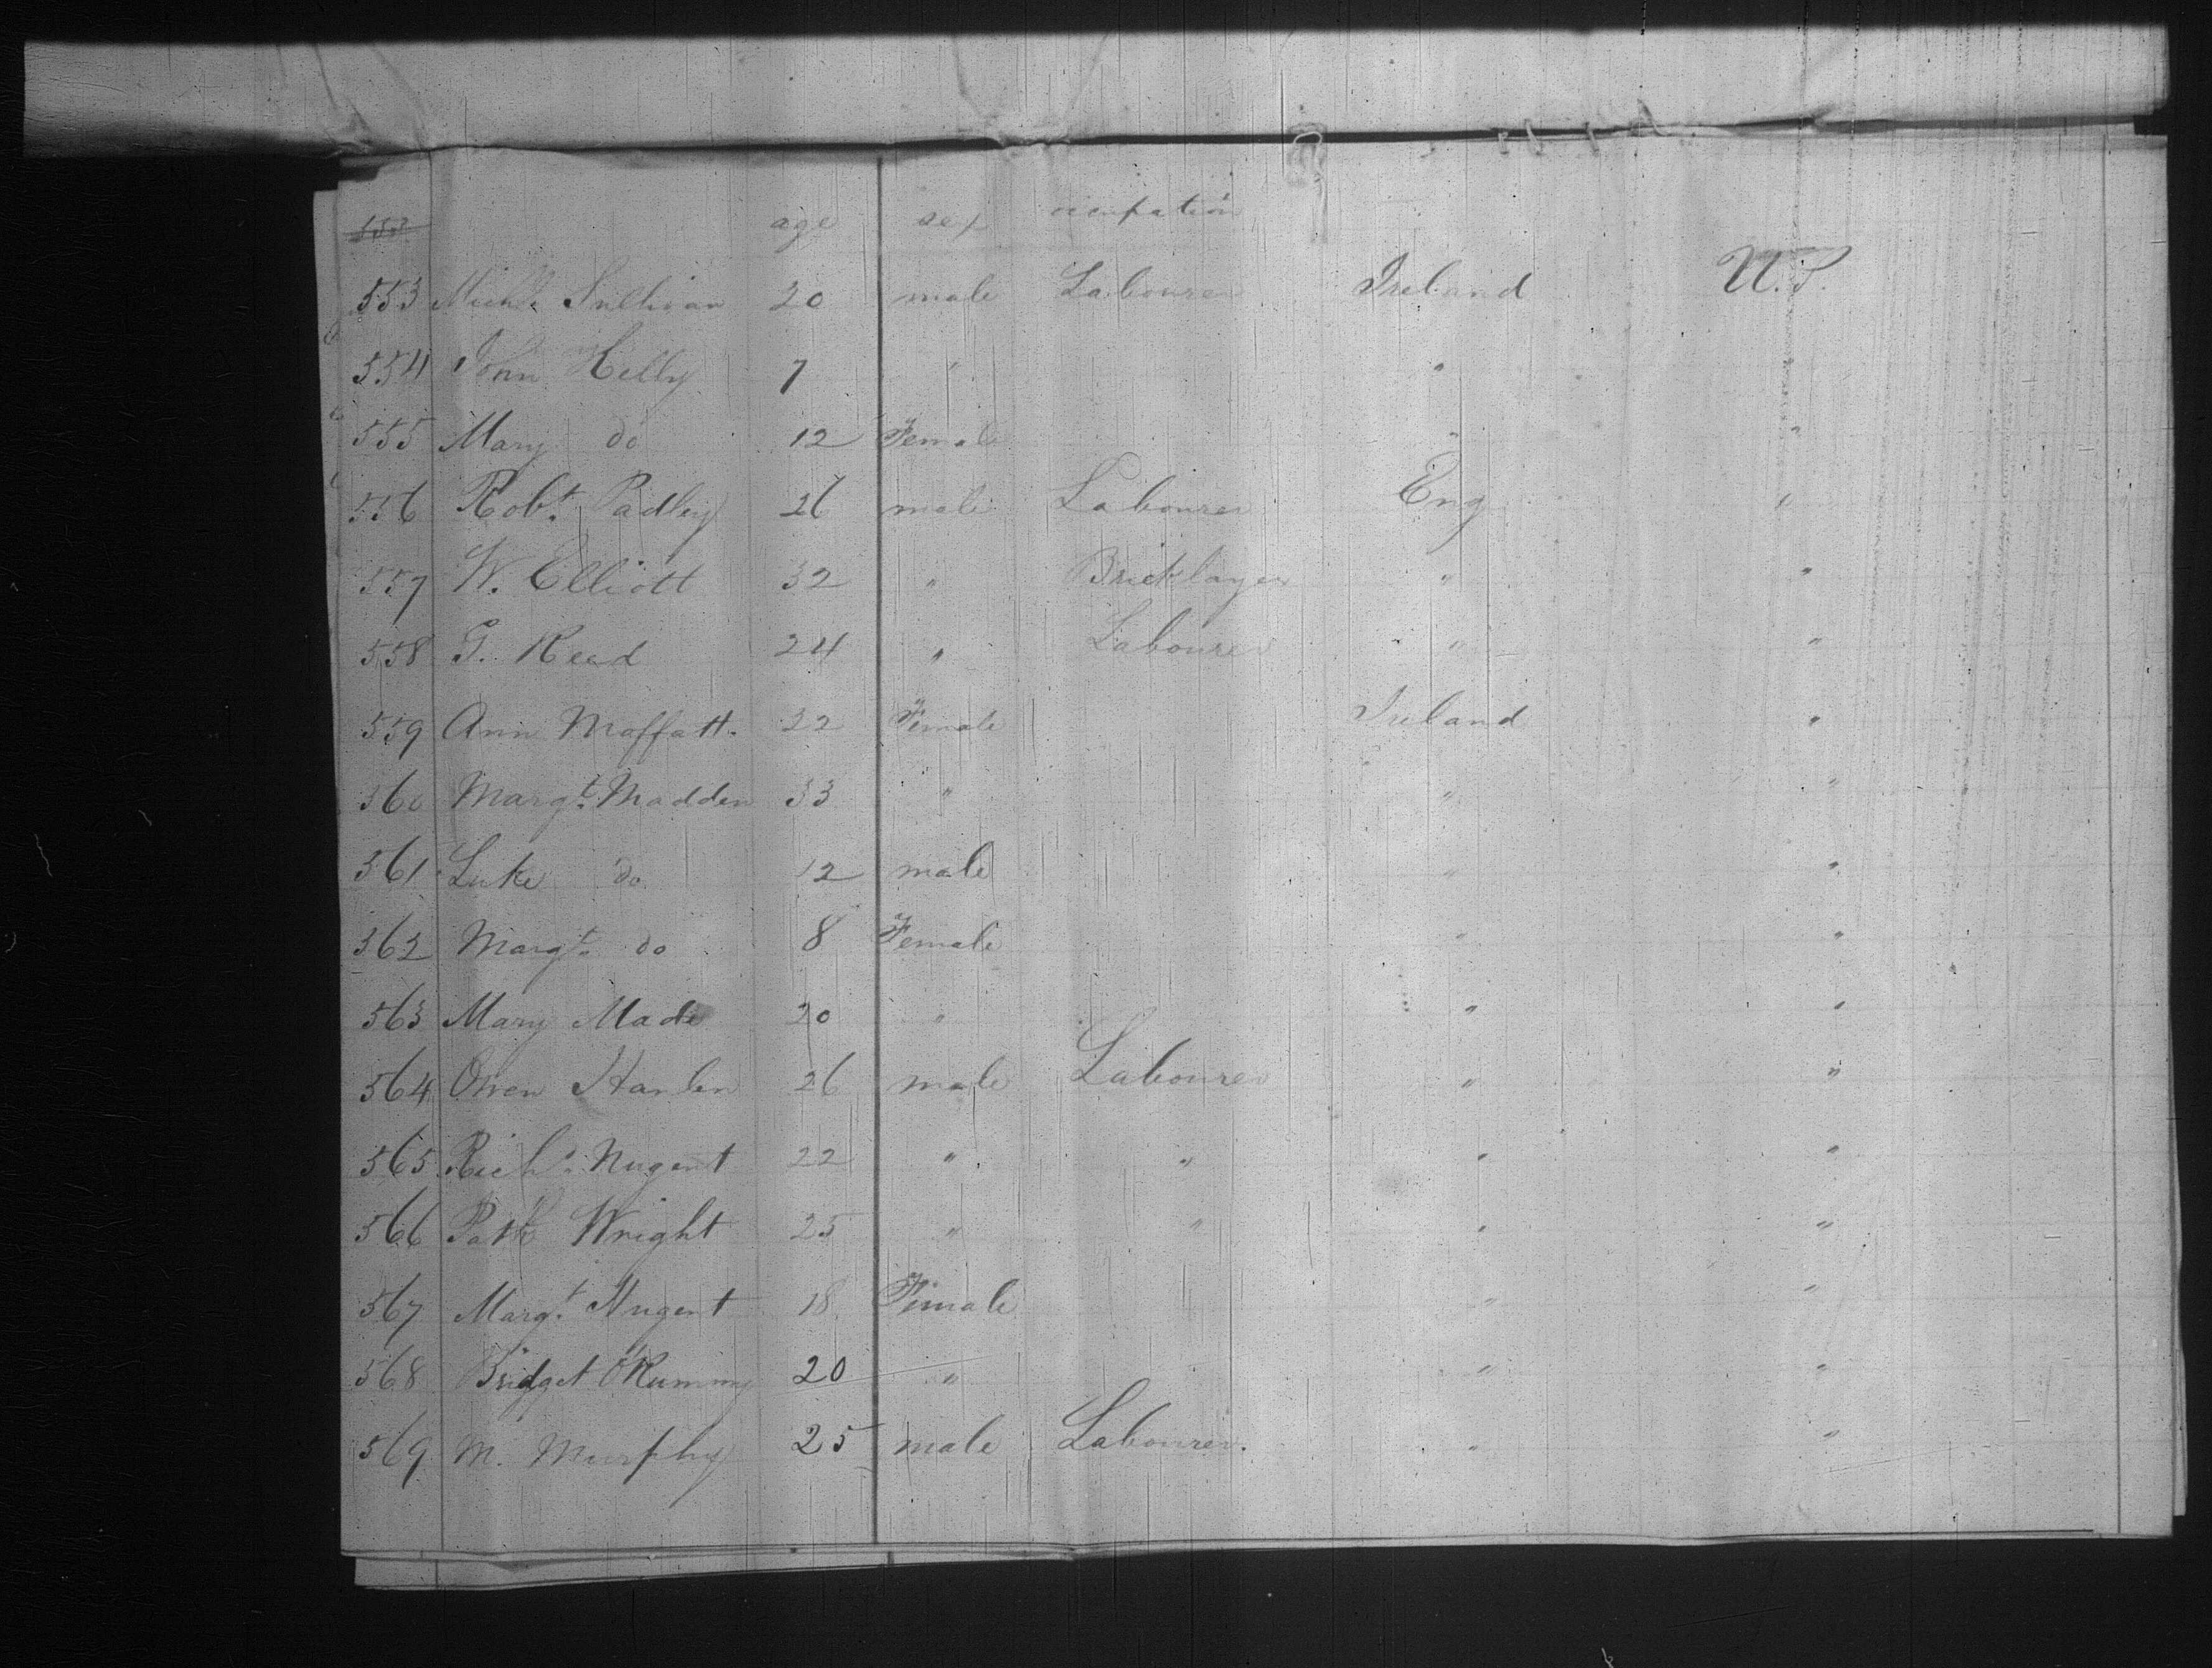 age sex occupation
553 Michl Sullivan 20 male Labourer Ireland U.S.
554 John Kelly 7 " " "
555 Mary do 12 Female " "
556 Robt. Padley 26 male Labourer Eng "
557 W. Elliott 32 " Bricklayer " "
558 G. Read 24 " Labourer " "
559 Ann Moffatt 22 Female Ireland "
560 Margt. Madden 33 " " "
561 Luke do 12 male " "
562 Margt. do 8 Female " "
563 Mary Made 20 " " "
564 Owen Hanlen 26 male Labourer " "
565 Richd. Nugent 22 " " " "
566 Patk Wright 25 " " " "
567 Margt. Nugent 18 Female " "
568 Bridget 20 " " "
569 M. Murphy 25 male Labourer. " "